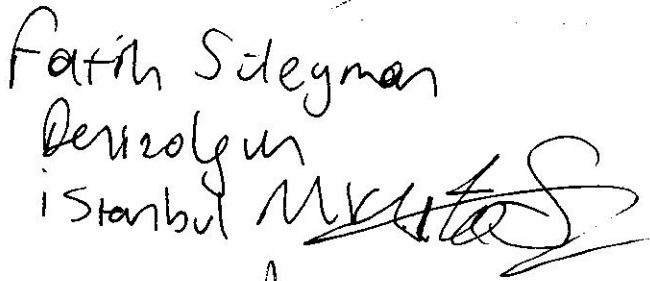 Fatih Süleyman
Denizolgun
istanbul